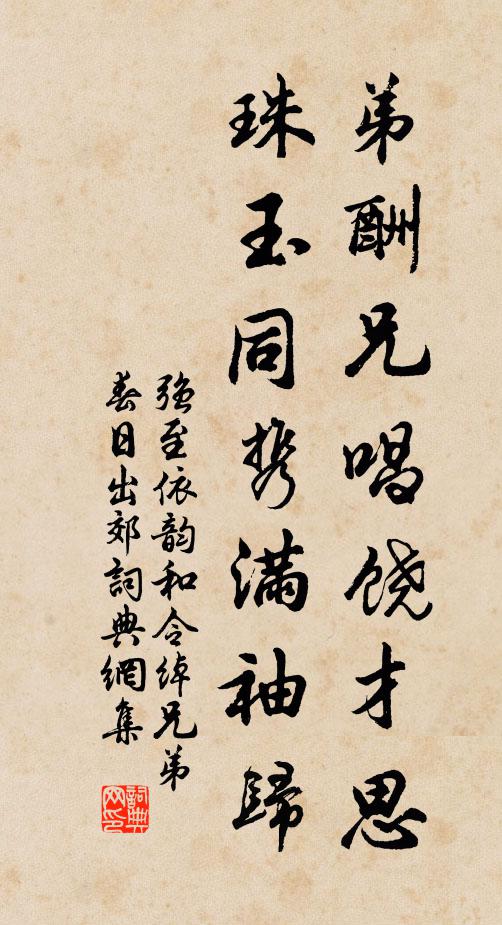 弟酬兄唱饶才思
珠玉同携满袖歸
强至依韵和令绰兄弟
春日出郊詞典網集
詞典
网印